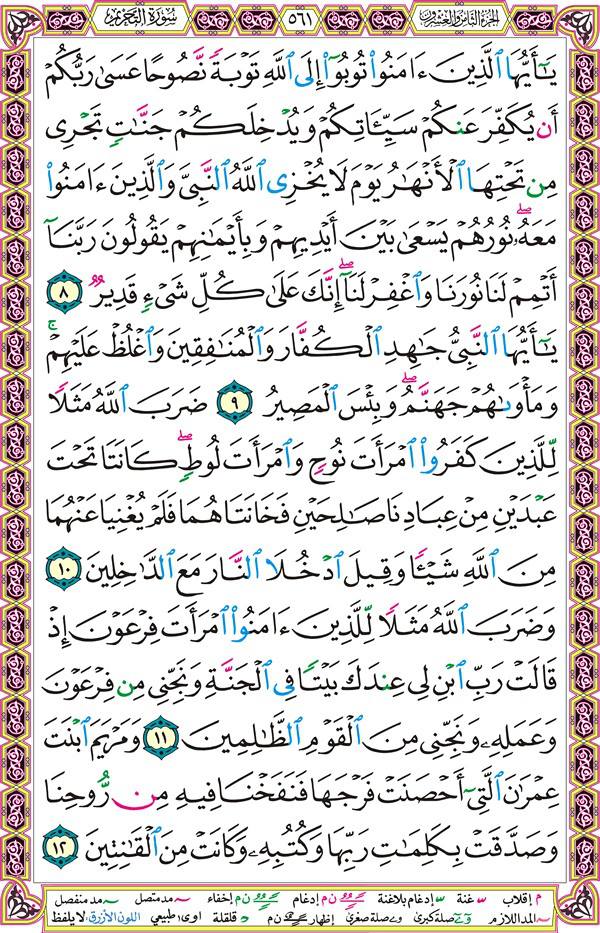 الجزء الثامن والعشرون ٥٦١ سورة التحريم
يَٰٓأَيُّهَا ٱلَّذِينَ ءَامَنُوا۟ تُوبُوٓا۟ إِلَى ٱللَّهِ تَوْبَةً نَّصُوحًا عَسَىٰ رَبُّكُمْ
أَن يُكَفِّرَ عَنكُمْ سَيِّـَٔاتِكُمْ وَيُدْخِلَكُمْ جَنَّٰتٍ تَجْرِى
مِن تَحْتِهَا ٱلْأَنْهَٰرُ يَوْمَ لَا يُخْزِى ٱللَّهُ ٱلنَّبِىَّ وَٱلَّذِينَ ءَامَنُوا۟
مَعَهُۥ ۖ نُورُهُمْ يَسْعَىٰ بَيْنَ أَيْدِيهِمْ وَبِأَيْمَٰنِهِمْ يَقُولُونَ رَبَّنَآ
أَتْمِمْ لَنَا نُورَنَا وَٱغْفِرْ لَنَآ ۖ إِنَّكَ عَلَىٰ كُلِّ شَىْءٍ قَدِيرٌ ٨
يَٰٓأَيُّهَا ٱلنَّبِىُّ جَٰهِدِ ٱلْكُفَّارَ وَٱلْمُنَٰفِقِينَ وَٱغْلُظْ عَلَيْهِمْ ۚ
وَمَأْوَىٰهُمْ جَهَنَّمُ ۖ وَبِئْسَ ٱلْمَصِيرُ ٩ ضَرَبَ ٱللَّهُ مَثَلًا
لِّلَّذِينَ كَفَرُوا۟ ٱمْرَأَتَ نُوحٍ وَٱمْرَأَتَ لُوطٍ ۖ كَانَتَا تَحْتَ
عَبْدَيْنِ مِنْ عِبَادِنَا صَٰلِحَيْنِ فَخَانَتَاهُمَا فَلَمْ يُغْنِيَا عَنْهُمَا
مِنَ ٱللَّهِ شَيْـًٔا وَقِيلَ ٱدْخُلَا ٱلنَّارَ مَعَ ٱلدَّٰخِلِينَ ١٠
وَضَرَبَ ٱللَّهُ مَثَلًا لِّلَّذِينَ ءَامَنُوا۟ ٱمْرَأَتَ فِرْعَوْنَ إِذْ
قَالَتْ رَبِّ ٱبْنِ لِى عِندَكَ بَيْتًا فِى ٱلْجَنَّةِ وَنَجِّنِى مِن فِرْعَوْنَ
وَعَمَلِهِۦ وَنَجِّنِى مِنَ ٱلْقَوْمِ ٱلظَّٰلِمِينَ ١١ وَمَرْيَمَ ٱبْنَتَ
عِمْرَٰنَ ٱلَّتِىٓ أَحْصَنَتْ فَرْجَهَا فَنَفَخْنَا فِيهِ مِن رُّوحِنَا
وَصَدَّقَتْ بِكَلِمَٰتِ رَبِّهَا وَكُتُبِهِۦ وَكَانَتْ مِنَ ٱلْقَٰنِتِينَ ١٢
م إقلاب غنة إدغام بلاغنة ن م إدغام ن م إخفاء مد متصل مد منفصل
المد اللازم صلة كبرى صلة صغرى إظهار ن م قلقلة اوى طبيعي اللون الأزرق لا يلفظ